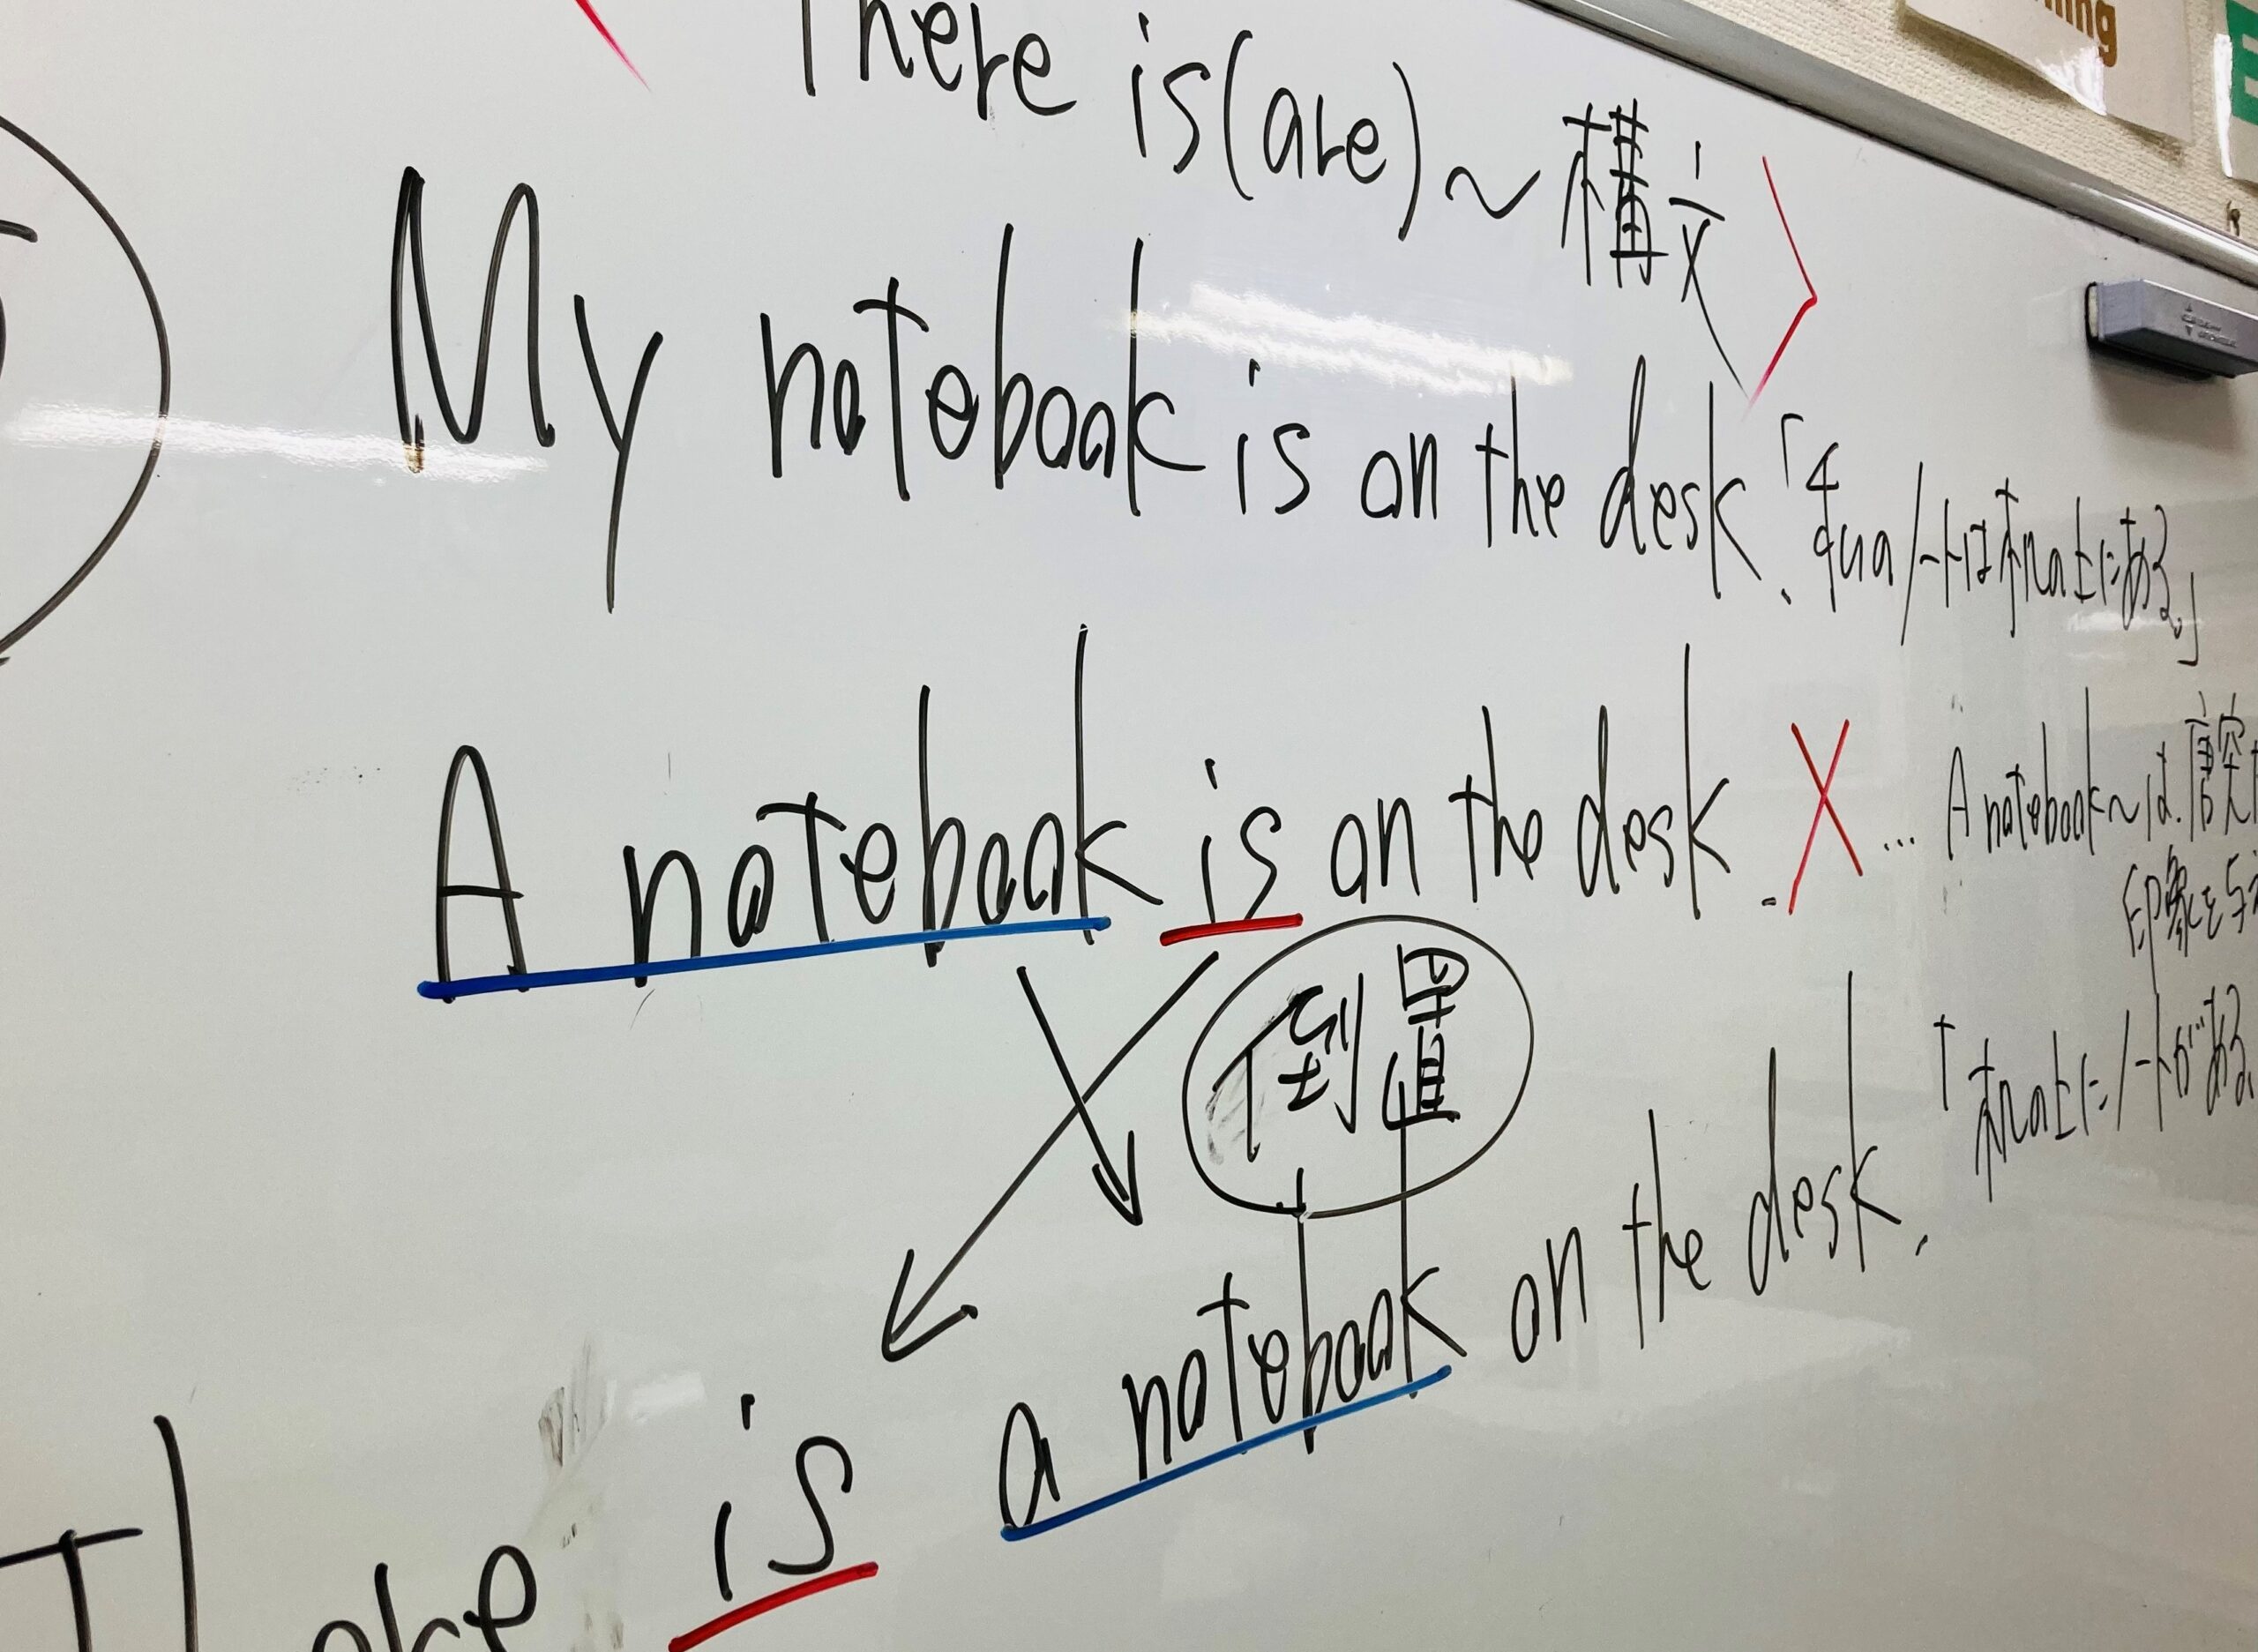 There is(are)～構文
My notebook is on the desk.「私のノートは机の上にある。」
A notebook is on the desk. X … A notebook～は、唐突
印象を与
倒置
「机の上にノートがある。
There is a notebook on the desk.